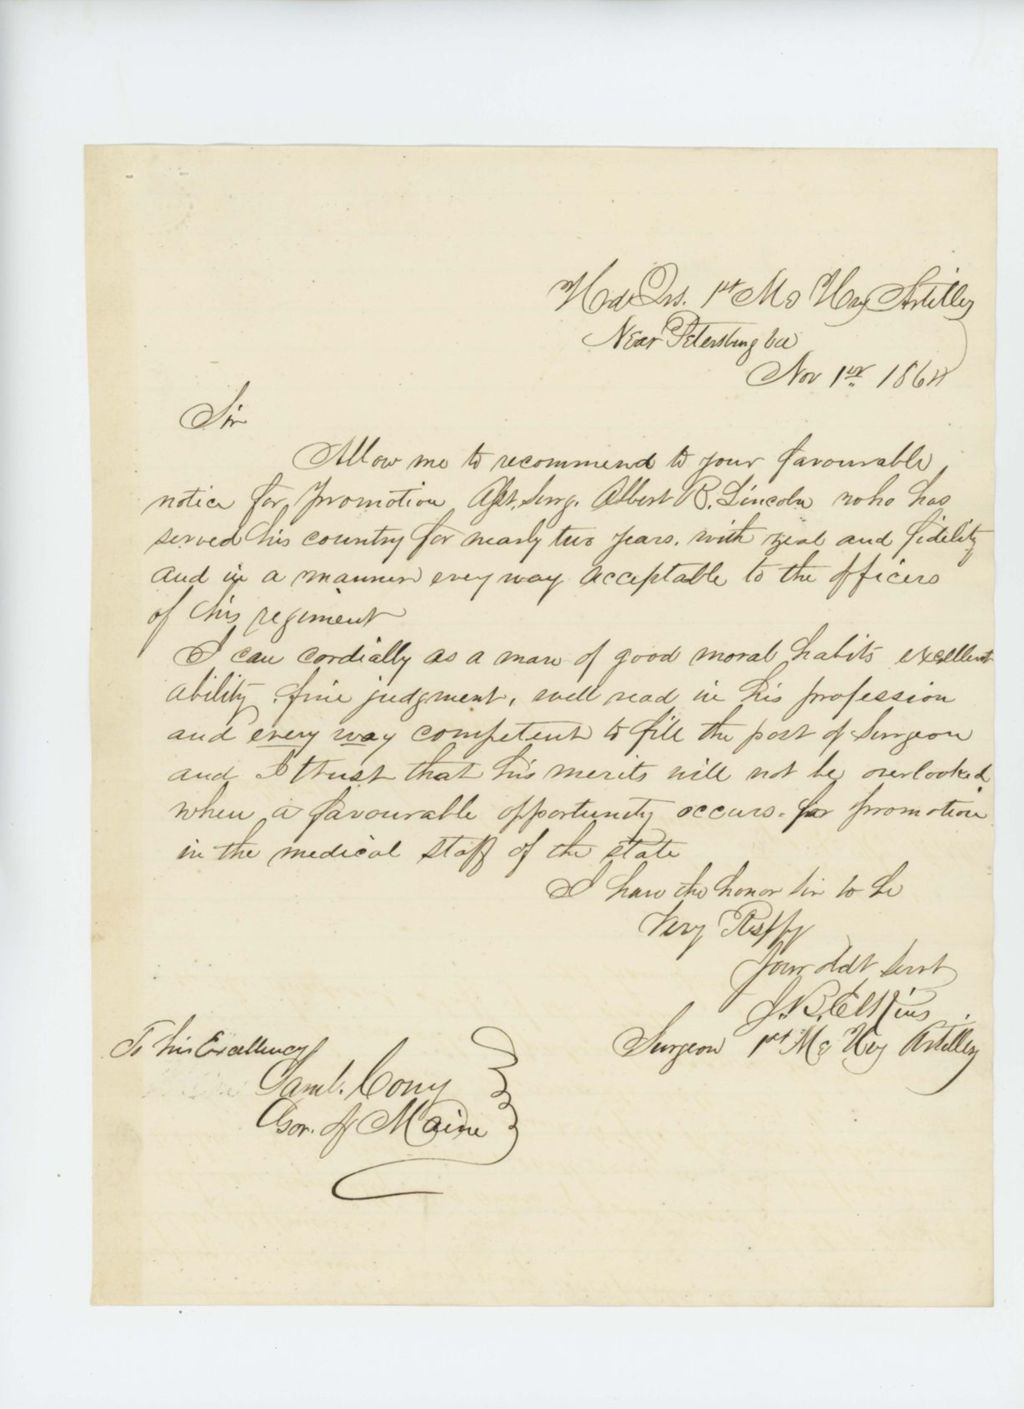 Hd Qrs. 1st Me Hvy Artilley
Near Petersburg Va
Nov 1st 1864
Sir
Allow me to recommend to your favourable
notice for promotion Asst. Surg. Albert R. Lincoln who has
served his country for nearly two years. with zeal and fidelity
and in a manner every way acceptable to the officers
of his regiment
I can cordially as a man of good moral habits excellent
ability, fine judgment, well read in his profession
and every way competent to fill the post of Surgeon
and I trust that his merits will not be overlooked
when a favourable opportunity occurs. for promotion
in the medical staff of the state
I have the honor Sir to be
Very Respfy
Your Obdt Servt
J. B. Elkins
Surgeon 1st Me Hvy Artilley
To his Excellency
Saml. Cony
Gov. of Maine